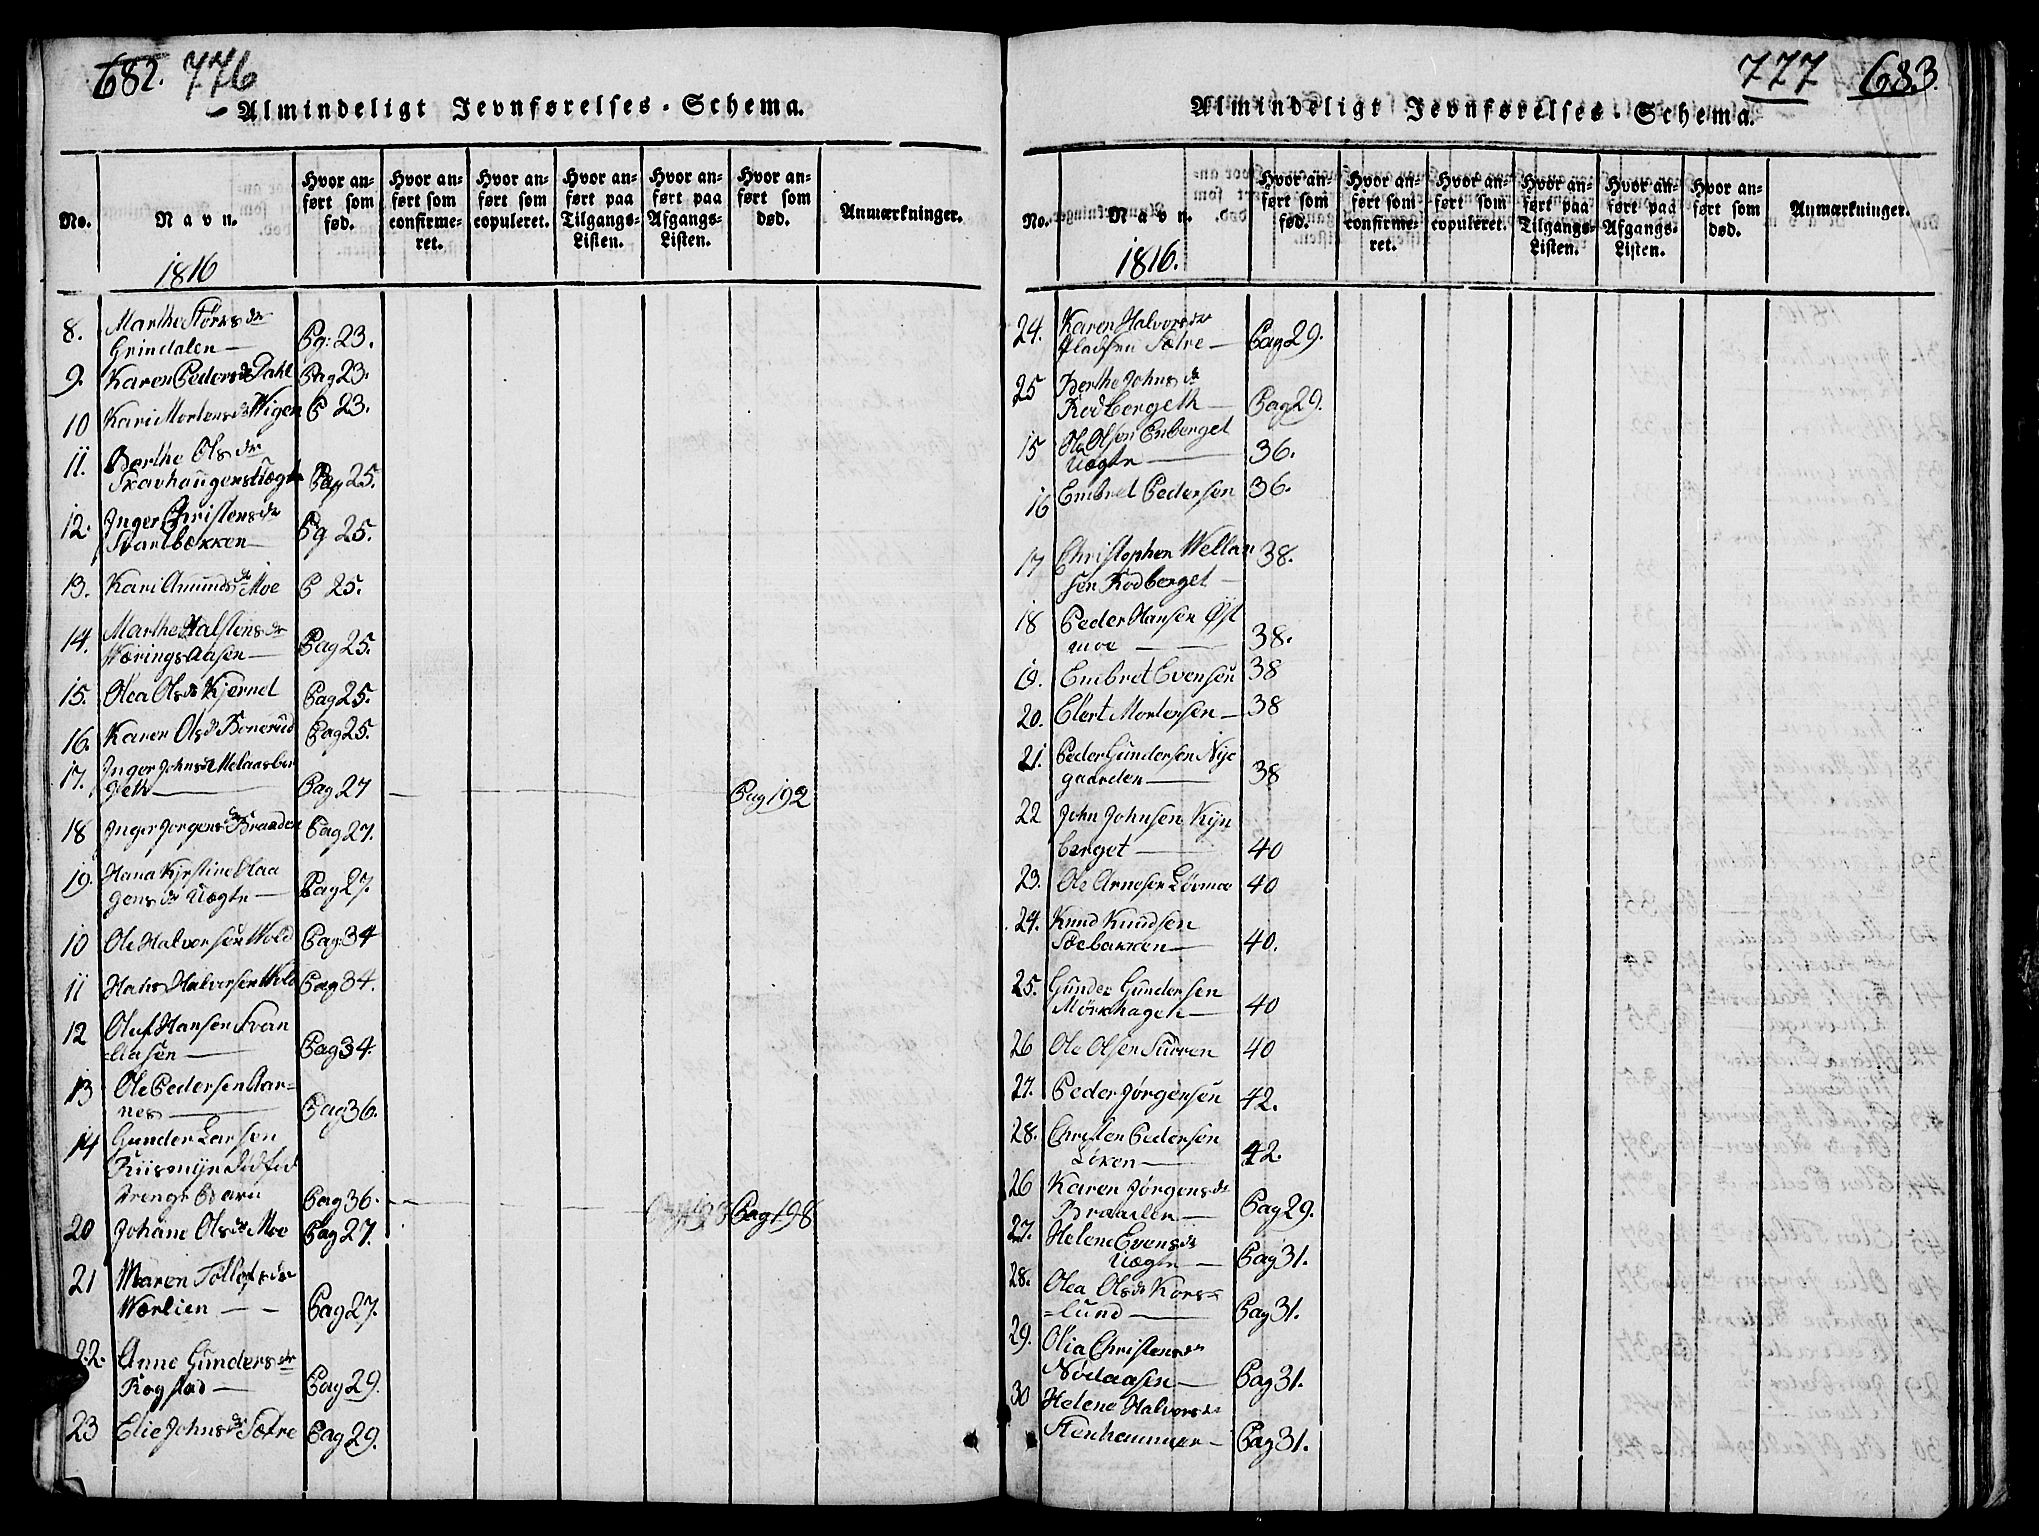 682. 776
Almindeligt Jevnførelses-Schema.
No.
Navn.
Hvor anført som fød.
Hvor anført som confirmeret.
Hvor anført som copuleret.
Hvor anført paa Tilgangs-Listen.
Hvor anført paa Afgangs-Listen.
Hvor anført som død.
Anmærkninger.
1816
8. Marthe Størksdr
Grindalen — Pg: 23.
9. Karen Pedersdr Dahl Pag 23.
10 Kari Mortensdr Wigen P 23.
11. Berthe Olsdr
Pag 25.
12. Inger Christensdr
Svartbækken — Pg 25.
13. Kari Amundsdr Moe P 25.
14. Marthe Halstensdr
Wæringsaasen — Pag 25.
15. Olea Olsdr Kjernet Pag 25.
16. Karen Olsdr Bonerud Pag 25.
17. Inger Johnsdr Melaasber
geth — Pag 27 — Pag 192
18 Inger Jorgensdr Braaden Pag 27.
19. Hana Kjrstine Haa
gensdr Uægte — Pag 27.
10 Ole Halvorsen Wold Pag 34
11 Hans Halvorsen Wold Pag 34.
12 Oluf Hansen Svan
aasen — Pag 34.
13 Ole Pedersen Aar=
nes — Pag 36.
14 Gunder Larsen
Riismyr dødfød
Drenge Barn Pag 36. — Pag 198
20 Johane Olsdr Moe Pag 27.
21 Maren Tollefsdr
Wærlien — — Pag 27.
22. Anne Gundersdr
Rogstad — Pag 29.
23 Elie Johnsdr Sætre Pag 29.
777 683.
Almindeligt Jevnførelses-Schema.
No.
Navn.
Hvor anført som fød.
Hvor anført som confirmeret.
Hvor anført som copuleret.
Hvor anført paa Tilgangs-Listen.
Hvor anført paa Afgangs-Listen.
Hvor anført som død.
Anmærkninger.
1816.
24. Karen Halvorsdr
Pladsen Sætre — Pag 29.
25 Berthe Johnsdr
Rodbergeth — Pag 29.
15 Ole Olsen Enberget
Uægte — 36.
16 Embret Pedersen 36.
17 Christopher Wellar
sen Rodberget — 38.
18 Peder Hansen Øst
moe — 38.
19. Embret Evensen 38
20. Elert Mortersen — 38
21. Peder Gundersen Nye
gaarden — 38
22 John Johnsen Kyn
berget — 40
23. Ole Arnesen Løvmoe 40
24. Knud Knudsen
Sæbakken — 40.
25. Gunder Gundersen
Mørkhagen — 40
26 Ole Olsen Surren 40
27. Peder Jørgensen 42.
28. Christen Pedersen
Løken — 42.
26 Karen Jørgensdr
Braaden — Pag 29.
27. Helene Evensdr
Uægte — Pag 31.
28. Olea Olsdr Kors=
=lund — Pag 31.
29. Olia Christensdr
Nødaasen — Pag 31.
30 Helene Halvorsdr
Stenhammer — Pag 31.